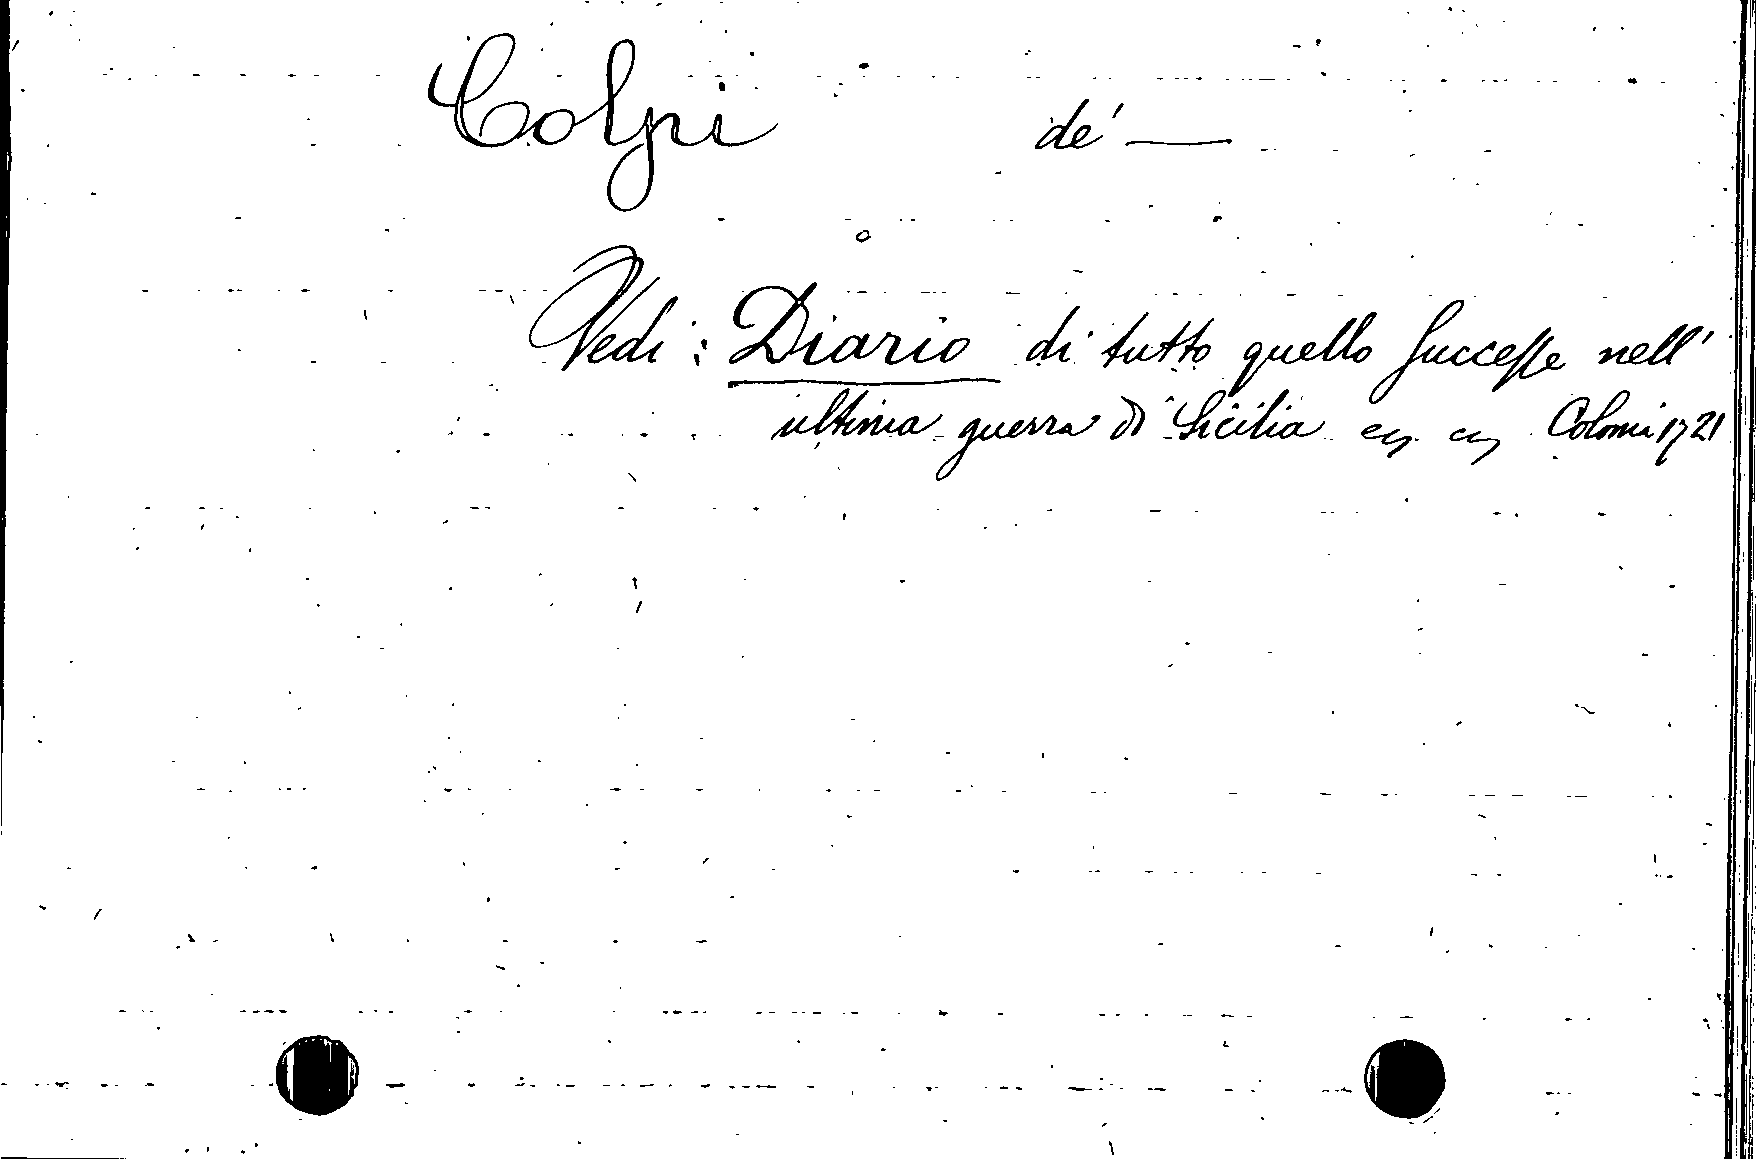 Colpi de' —
Vedi: Diario di tutto quello successe nell'
ultima guerra di Sicilia ec, ec, Colonia 1721